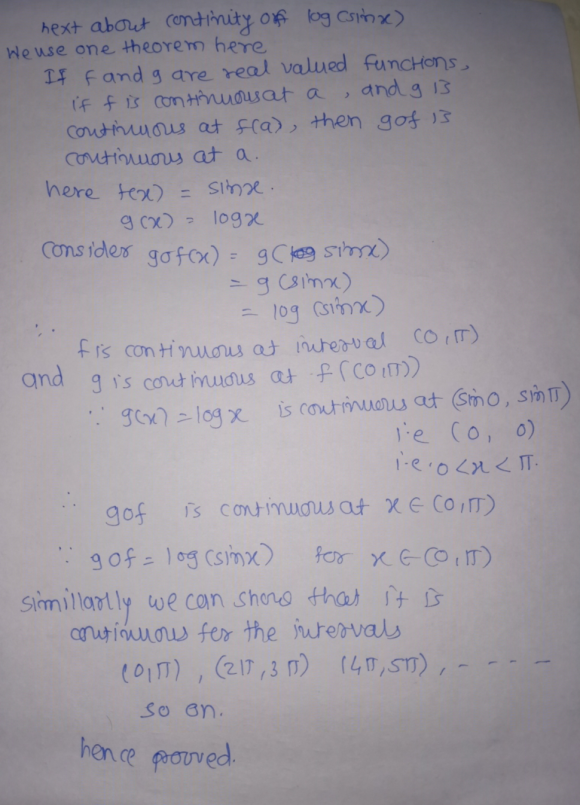 next about continity of log(sinx)
We use one theorem here
If f and g are real valued functions,
if f is continuous at a , and g is
continuous at f(a), then gof is
continuous at a.
here f(x) = sinx.
g(x) = logx
consider gof(x) = g( sinx)
= g(sinx)
= log (sinx)
∵
f is continuous at interval (0,π)
and g is continuous at f((0,π))
∵ g(x) = logx is continuous at (sin0, sinπ)
i.e (0, 0)
i.e. 0<x<π.
∴ gof is continuous at x∈(0,π)
∵ gof = log(sinx) for x∈(0,π)
simillarlly we can show that it is
continuous for the intervals
(0,π), (2π,3π) (4π,5π), - - - -
so on.
hence prooved.